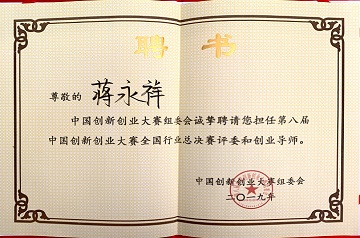 聘书
尊敬的 蒋永祥
中国创新创业大赛组委会诚挚聘请您担任第八届
中国创新创业大赛全国行业总决赛评委和创业导师。
中国创新创业大赛组委会
二〇一九年